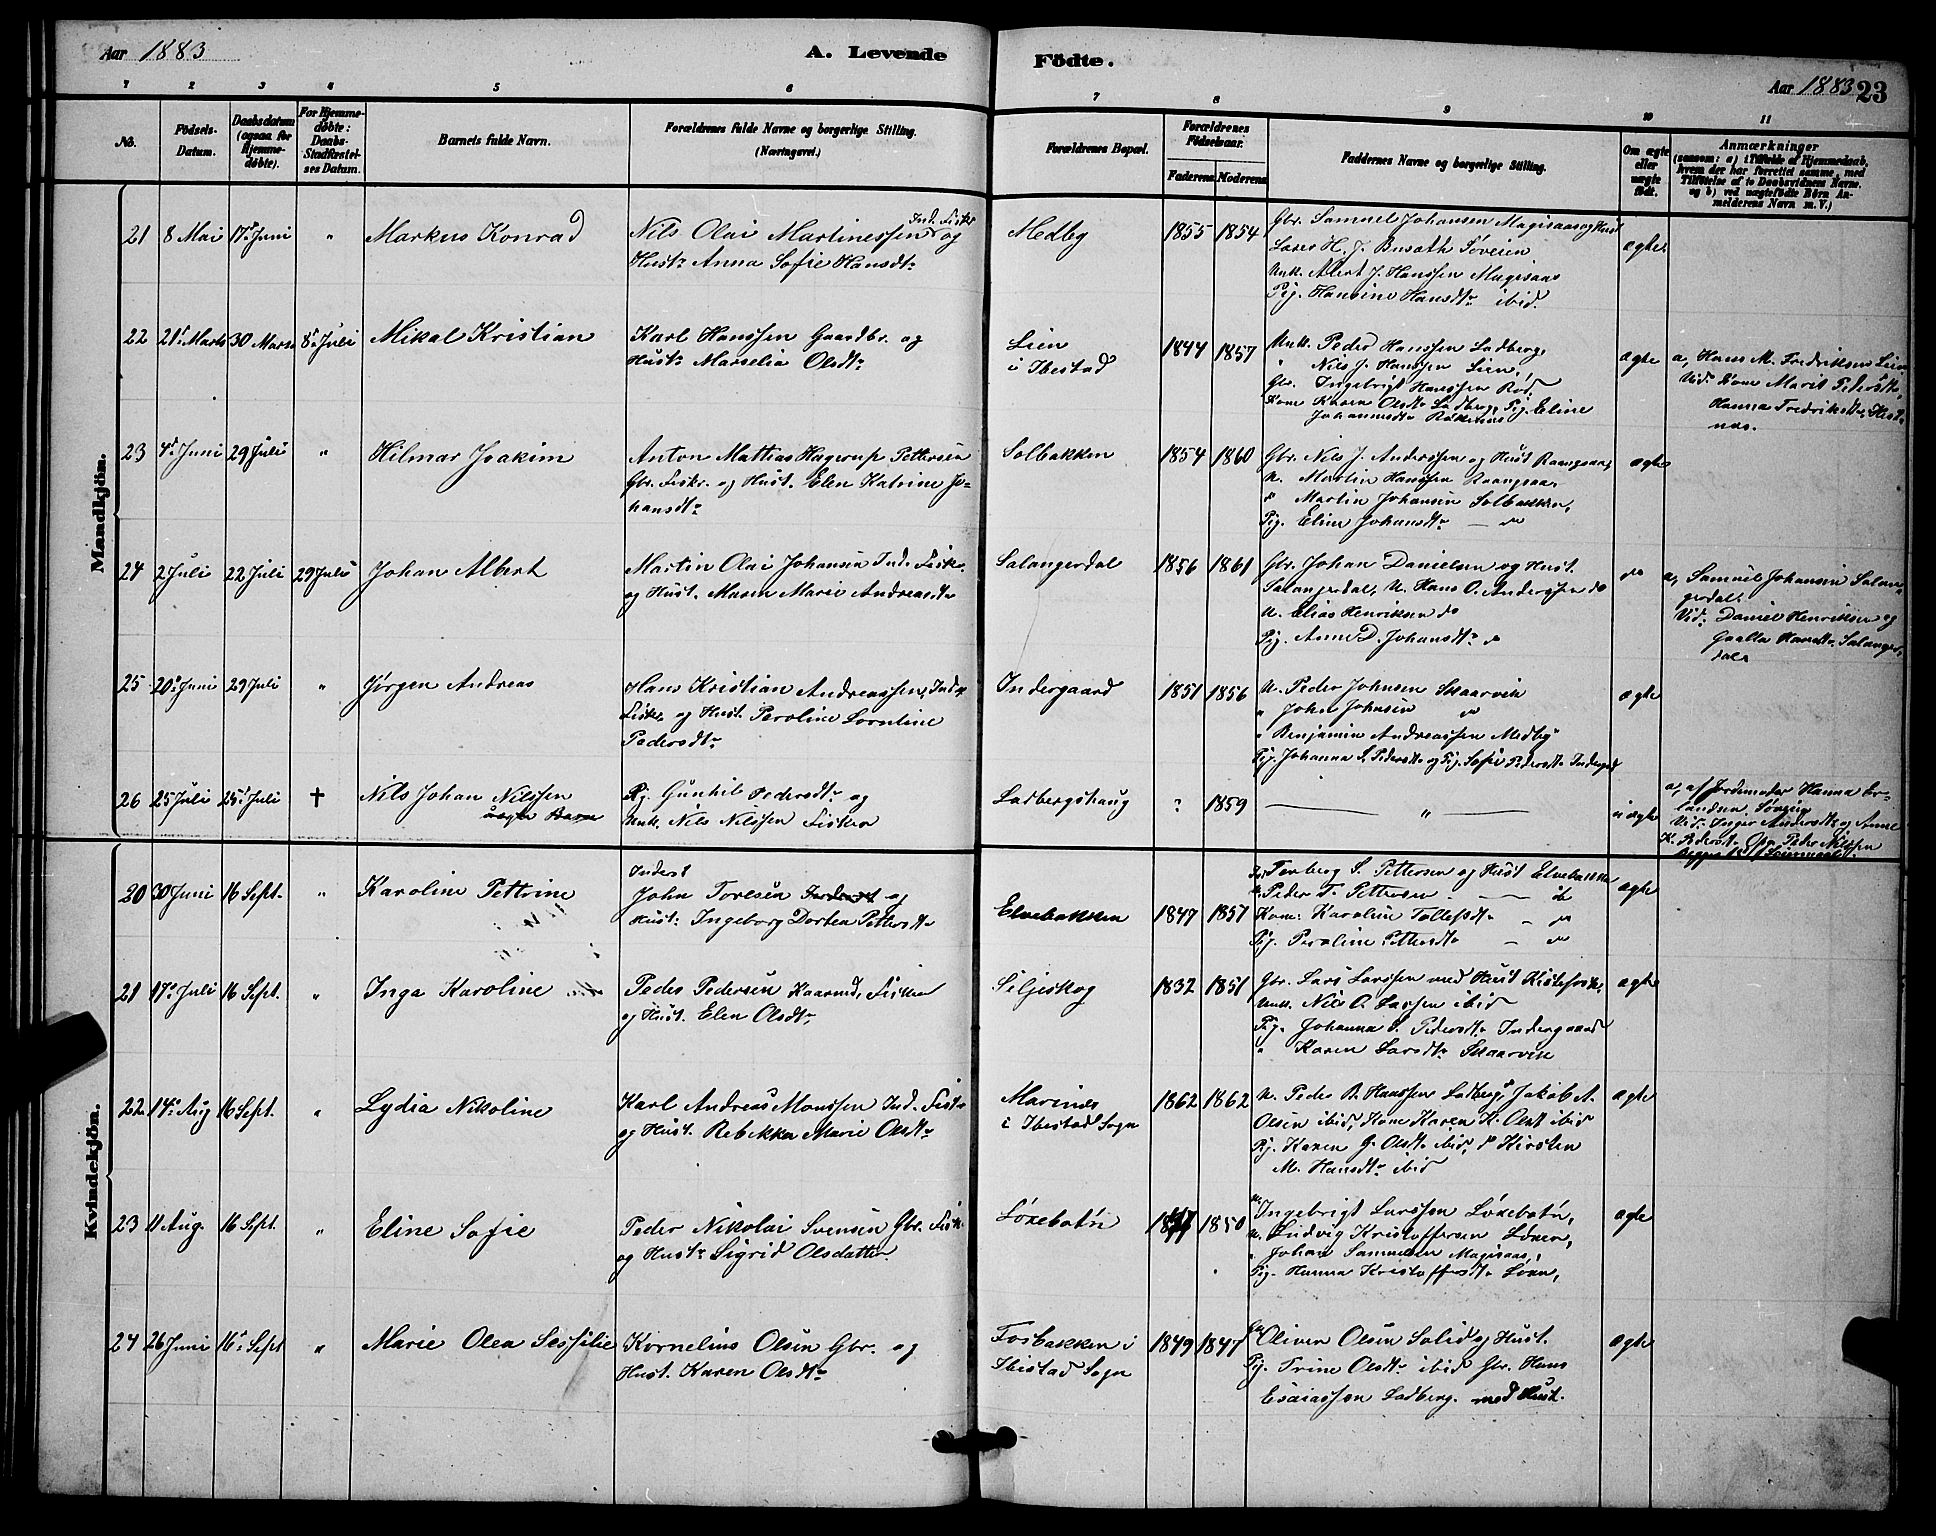 Aar 1883
A. Levende
Födte.
Aar 1883
23
1 2 3 4 5 6 7 8 9 10 11
No.
Födsels-
Datum.
Daabsdatum
(ogsaa for
Hjemme-
døbte).
For Hjemme-
døbte:
Daabs-
Stadfæstel-
ses Datum.
Barnets fulde Navn.
Forældrenes fulde Navne og borgerlige Stilling.
(Næringsvei.)
Forældrenes Bopæl.
Forældrenes
Födselsaar.
Faderens. Moderens.
Faddernes Navne og borgerlige Stilling.
Om ægte
eller
uægte
födt.
Anmærkninger
(saasom: a) i Tilfælde af Hjemmedaab,
hvem der har forrettet samme, med
Tilföielse af to Daabsvidners Navne.
og b) ved uægtefödte Börn An-
melderens Navn m. V.)
Mandkjön.
21 8 Mai 17de Juni " Markus Konrad
Nils Olai Martinessen Ind. Fisker og
Hustr Anna Sofie Hansdtr
Medby 1855 1854
Gbr. Samuel Johansen Magisaas og Hust
Laser H. J. Busath Søveien
Unk. Albert J. Hanssen Magesaas
Pig. Hansine Hansdtr ibid.
ægte
22 21de Marts 30 Marts 8de Juli Mikal Kristian
Karl Hanssen Gaardbr. og
Hustr Marselia Olsdtr
Lien
i Ibestad
1844 1857
Unk. Peder Hanssen Ladberg,
" Nils J. Hanssen Lien,
Gbr. Ingebrigt Hanssen Rød
Kone Karen Olsdtr Ladberg, Pig. Eline
Johannesdtr Røkenes
ægte
a, Hans M. Fredriksen Lien
Vid. Kone Marit Pedersdtr
Hanna Fredriksdtr Hest-
nes.
23 4de Juni 29 Juli " Hilmar Joakim
Anton Mathias Hagerup Pettersen
Gbr. Fiskr. og Hust. Elen Katrine Jo-
hansdtr
Solbakken 1854 1860
Gbr. Nils J. Anderssen og Hust Raangsaas
U. Martin Hanssen Raangsaas
" Martin Johansen Solbakken,
Pig. Eline Johansdtr — do
ægte
24 2 Juli 22 Juli 29 Juli Johan Albert
Martin Olai Johansen Ind. Fisker
og Hust. Maren Marie Andreasdtr
Salangerdal 1856 1861
Gbr. Johan Danielsen og Hust.
Salangerdal, U. Hans O. Anderssen do
U. Elias Henriksen do
Pig. Anne D. Johansdtr do
do
a, Samuel Johansen Salan-
gerdal.
Vid. Daniel Henriksen og
Hansdtr Salanger-
dal
25 20de Juni 29 Juli " Jørgen Andreas
Hans Kristian Andreassen, Inds
Fisker og Hust. Peroline Lorntine
Pedersdtr
Indergaard 1851 1856
U. Peder Johnsen Skaarvik
" John Johnsen do
" Benjamin Andreassen Medby
Pig. Johanna S. Pedersdtr og Pig. Sofie Pedersdtr Indergrd
ægte
26 25 Juli 25de Juli † Nils Johan Nilssen
uægte Barn
Pig. Gunhil Pedersdtr og
Unk. Nils Nilssen Fisker
Ladbergshaug ? 1859
— " —
uægte
a, af Jordemoder Hanna Er-
landsen Søveien
Vid. Inger Andersdtr og Anne
K. Pedersdtr Opr. Peder Nilssen
Kvindekjön.
20 30 Juni 16 Sept. " Karoline Pettrine
Inderst
John Toresen Inderst og
Hustr: Ingeborg Dortea Pettersdtr
Elvebakken 1847 1857
Torberg S. Pettersen og Hust Elvebakken
Peder T. Pettersen — do
Kone: Karoline Tollefsdtr — do
Pig. Peroline Pettersdtr — do
ægte
21 17de Juli 16 Sept. " Inga Karoline
Peder Pedersen Kaarud, Fisker
og Hust. Elen Olsdtr,
Siljeskog 1832 1851
Gbr. Lars Larssen med Hust Kistefosk,
Unk. Nils O. Larsen ibid
Pig. Johanna S. Pedersdtr Indergaard
" Karen Larsdtr Skaarvik
ægte
22 14de Aug 16 Sept. " Lydia Nikoline
Karl Andreas Monssen Ind. Fiskr
og Hust. Rebekka Marie Olsdtr
Marines
i Ibestad Sogn
1862 1862
U. Peder B. Hanssen Ladberg, Jakob A.
Olsen ibid, Kone Karen K. Olsdtr ibid
Pig. Karen G. Olsdtr ibid, do Kirsten
M. Hansdtr ibid
ægte
23 11 Aug. 16 Sept. " Eline Sofie
Peder Nikolai Svensen Gbr. Fisk.
og Hustr Sigrid Olsdatter.
Løxebotn 1847 1850
Ingebrigt Larssen Løxebotn,
U. Ludvig Kristoffersen Løxen,
" Johan Samuelsen Magisaas,
Pig. Hanna Kristoffersdtr Løxen,
ægte
24 26 Juni 16de Sept " Marie Olea Sessilie
Kornelius Olsen Gbr. og
Hust. Karen Olsdtr
Fosbakken i
Ibestad Sogn
1849 1847
Gbr Oliver Olsen Solid og Hust.
Pig. Trine Olsdtr ibid Gbr. Hans
Esaiassen Ladberg. med Hust.
ægte